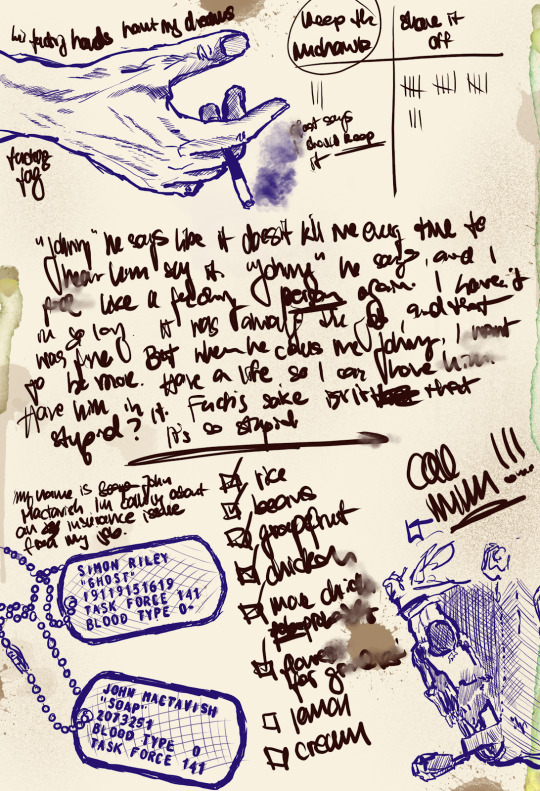 his fucking hands haunt my dreams
keep the
mohawk
shave it
off
says
should keep
it
fucking
fag
"Johnny" he says like it doesn't kill me every time to
hear him say it. "Johnny" he says, and I
like a fucking person again. I haven't
in so long. It was always the job and that
was fine. But when he calls me Johnny, I want
to be more. Have a life so I can have him.
Have him in it. Fuck's sake isn't that
stupid? It's so stupid
my name is John
Mactavish I'm calling about
an insurance issue
from my job.
rice
beans
grapefruit
chicken
more
for
lemon
cream
call
mum
SIMON RILEY
"GHOST"
19119151619
TASK FORCE 141
BLOOD TYPE O-
JOHN MACTAVISH
"SOAP"
2073251
BLOOD TYPE O
TASK FORCE 141